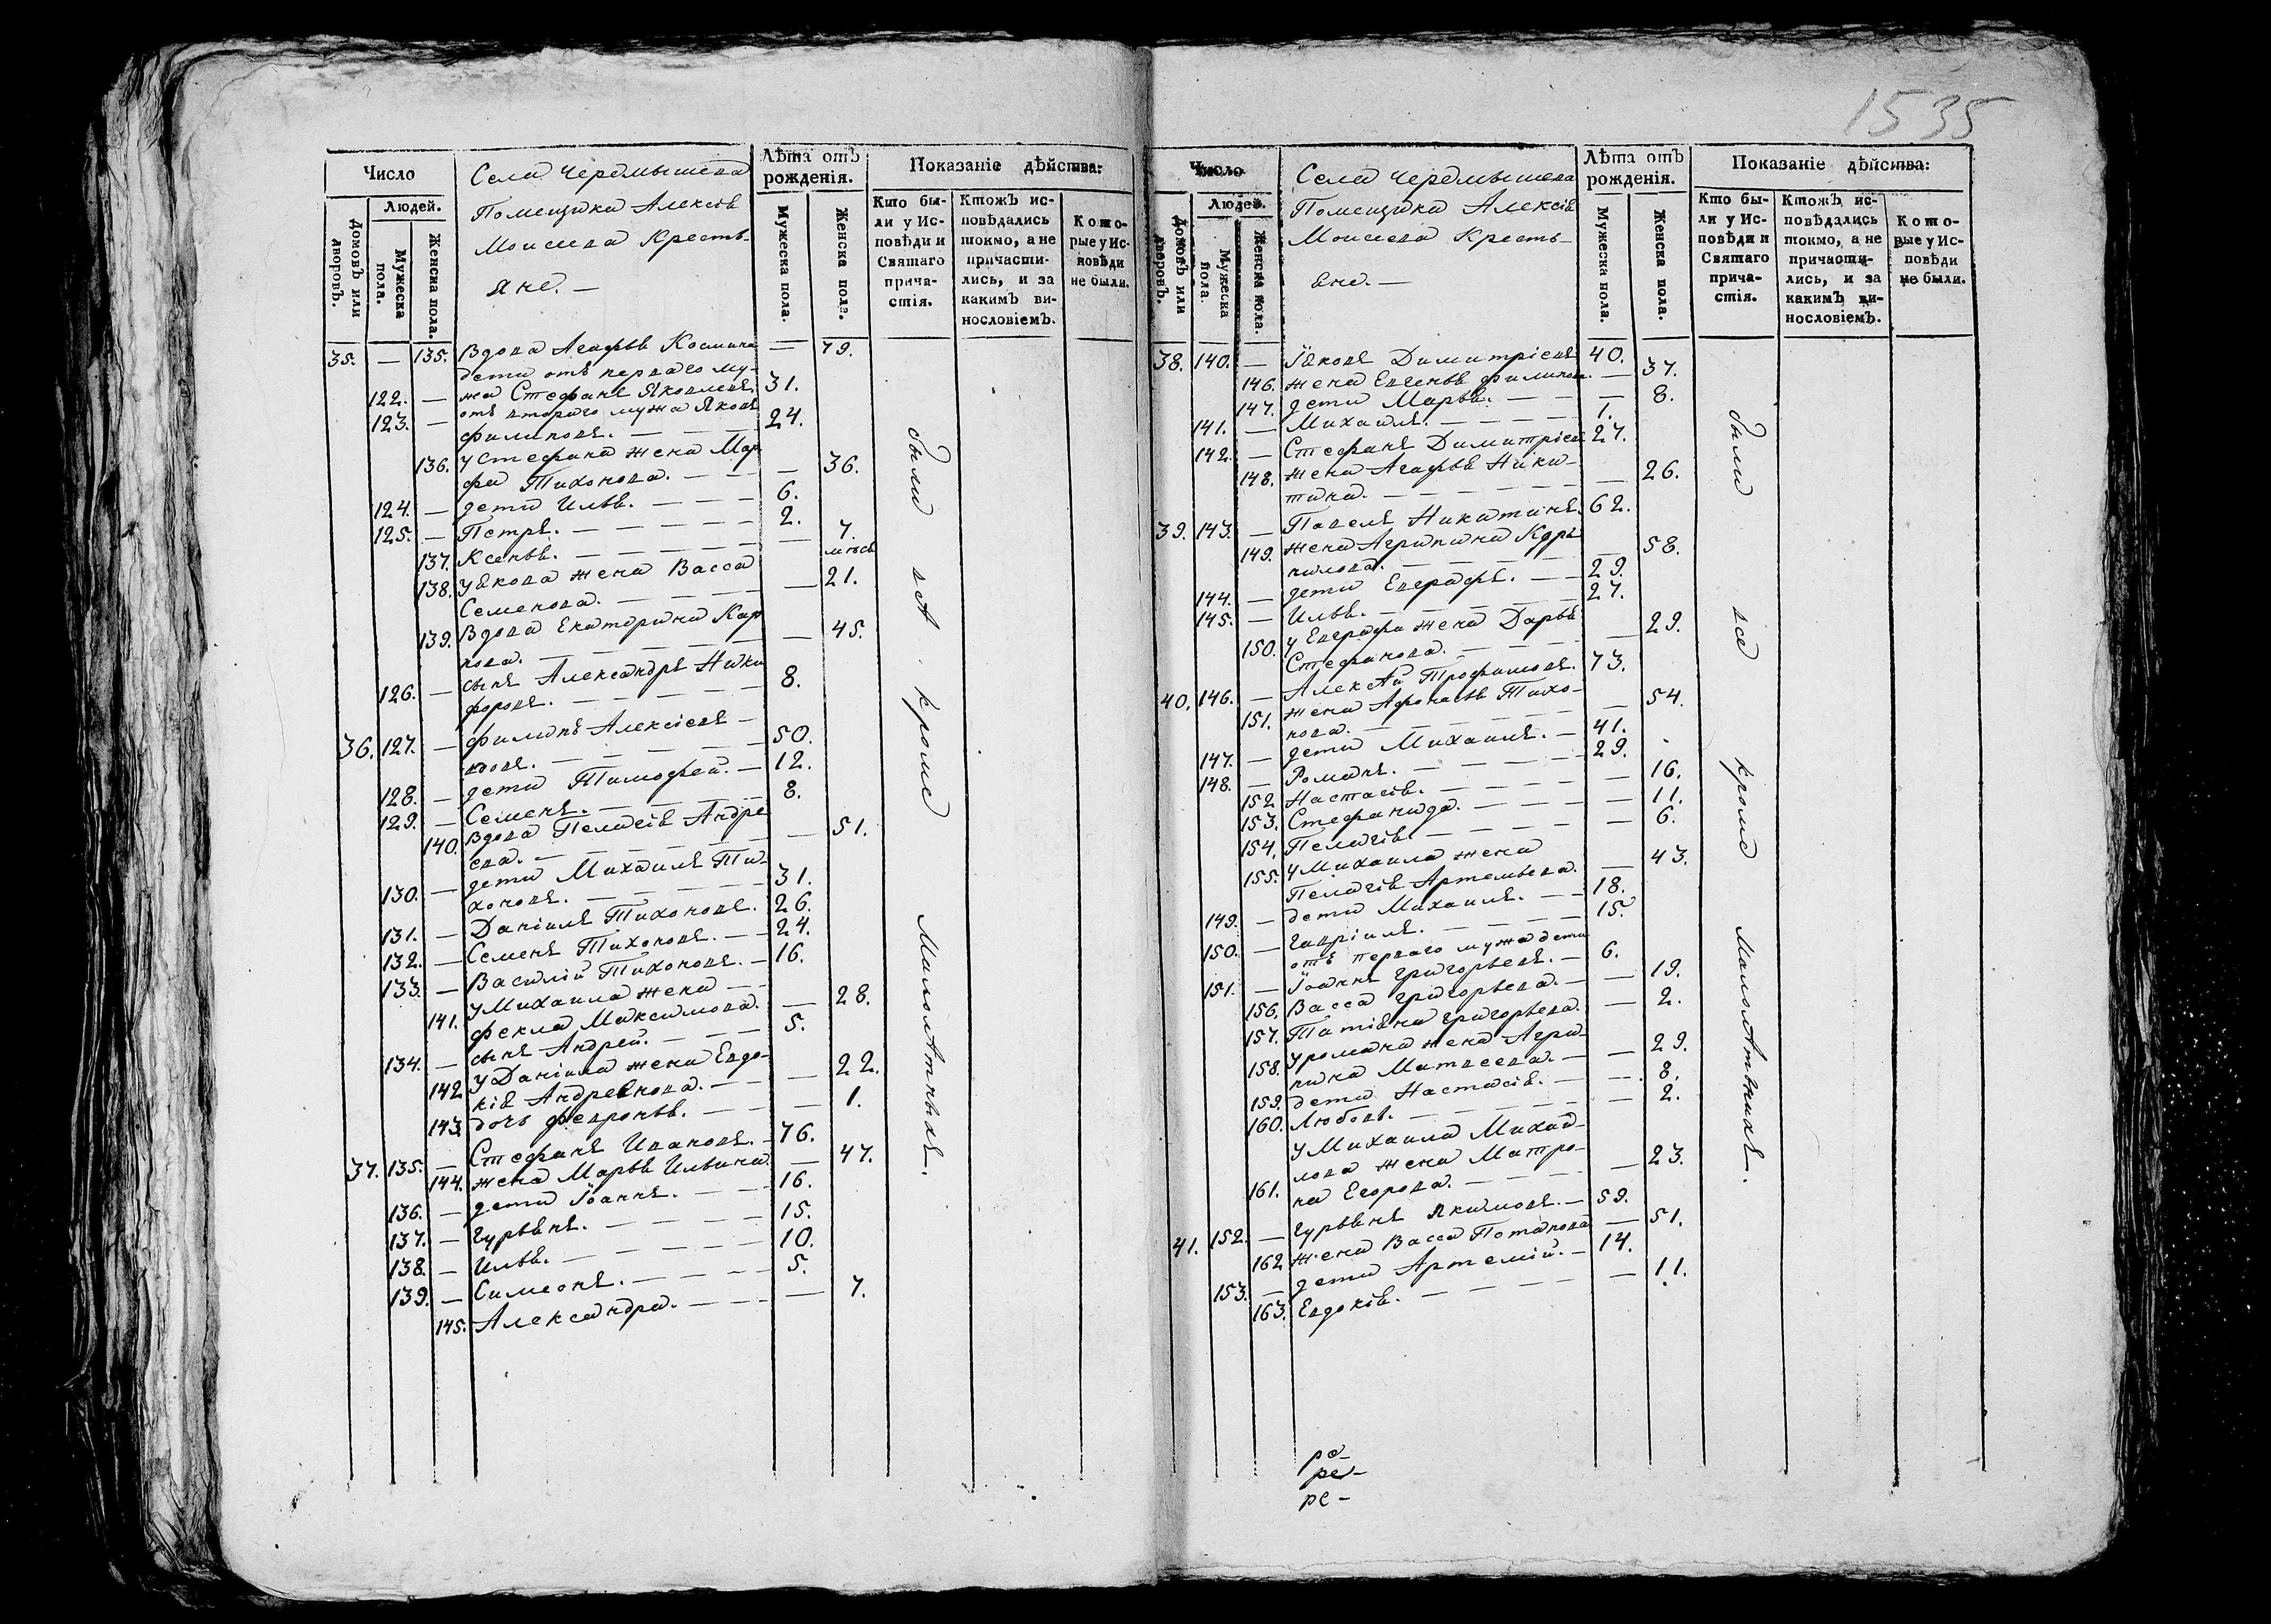 1535
Число
Людей.
Домовъ или дворовъ.
Мужеска пола.
Женска пола.
Села Черемышева
Помещика Алексѣя
Моисеева Кресть-
яне. —
Лѣта отъ рожденія.
Мужеска пола.
Женска пола.
Показаніе дѣйства:
Кто бы-ли у Ис-повѣди и Святаго прича-стія.
Ктожъ ис-повѣдались токмо, а не причасти-лись, и за какимъ ви-нословіемъ.
Кото-рые у Ис-повѣди не были.
35. — 135. Вдова Агафья Космина — 79.
дети отъ перваго му-
122. — жа Стефанъ Яковлевъ 31.
отъ втораго мужа Яковъ
123. — Филиповъ. — — 24.
136. У Стефана жена Мар
фа Тихонова. — — — 36.
124. — дети Илья. — — — 6.
125. — Петръ. — — — — 2.
137. Ксенья. — — — — 7. мѣся
138. У Якова жена Васса
Семенова. — — — — 21.
139. Вдова Екатерина Кар
пова. — — — — — 45.
126. — сынъ Александръ Ники
форовъ. — — — — 8.
36. 127. — Филипъ Алексіевъ —
вдовъ. — — — — 50.
128. — дети Тимофей. — 12.
129. — Семенъ. — — — 8.
140. Вдова Пелагія Андре
ева. — — — — — 51.
130. — дети Михаилъ Ти-
хоновъ. — — — — 31.
131. — Даніилъ Тихоновъ. 26.
132. — Семенъ Тихоновъ. — 24.
133. — Василій Тихоновъ. — 16.
У Михаила жена —
141. Фекла Максимова. — 28.
134. — сынъ Андрей. — — 5.
142 У Даніила жена Евдо-
кія Андреянова. — — — 22.
143 дочь Февронья. — — — 1.
37. 135. — Стефанъ Ивановъ. — 76.
144. жена Марья Ильина — 47.
136. — дети Іоаннъ. — — 16.
137. — Гурьянъ. — — — 15.
138. — Илья. — — — — 10.
139. — Симеонъ. — — — 5.
145. Александра. — — — — 7.
были всѣ кроме Малолѣтныхъ.
Число
Людей.
Домовъ или дворовъ.
Мужеска пола.
Женска пола.
Села Черемышева
Помещика Алексѣя
Моисеева Кресть-
яне. —
Лѣта отъ рожденія.
Мужеска пола.
Женска пола.
Показаніе дѣйства:
Кто бы-ли у Ис-повѣди и Святаго прича-стія.
Ктожъ ис-повѣдались токмо, а не причасти-лись, и за какимъ ви-нословіемъ.
Кото-рые у Ис-повѣди не были.
38. 140. — Іяковъ Димитріевъ 40.
146. жена Евгенья Филипова. — 37.
147. дети Марья. — — — 8.
141. — Михаилъ. — — — 1.
142. — Стефанъ Димитріевъ 27.
148. жена Агафья Ники-
тина. — — — — — 26.
39. 143. — Павелъ Никитинъ. 62.
149. жена Агрипина Кор
нилова. — — — — 58.
144. — дети Евграфъ. — — 29.
145. — Илья. — — — — 27.
150. У Евграфа жена Дарья
Стефанова. — — — — 29.
40. 146. — Алексѣй Трофимовъ. 73.
151. жена Афонасья Тихо-
нова. — — — — — 54.
147. — дети Михаилъ. — 41.
148. — Романъ. — — — 29.
152 Настасія. — — — — 16.
153. Стефанида. — — — — 11.
154. Пелагія — — — — 6.
155. У Михаила жена
Пелагія Артемьева. — 43.
149. — дети Михаилъ. — — 18.
150. — Гавріилъ. — — — 15.
отъ перваго мужа дети
151. — Іоаннъ Григорьевъ. — 6.
156. Васса Григорьева. — — 19.
157. Татіяна Григорьева. — 2.
158. У Романа жена Агри-
пина Матвеева. — — 29.
159. дети Настасія. — — 8.
160. Любовь. — — — — 2.
У Михаила Михай-
лова жена Матро-
161. на Егорова. — — — — 23.
41. 152. — Гурьянъ Якимовъ. — 59.
162 жена Васса Потапова — 51.
153. — дети Артемій. — 14.
163. Евдокія. — — — — 11.
были все кроме Малолѣтныхъ.
ре-
ре-
ре-